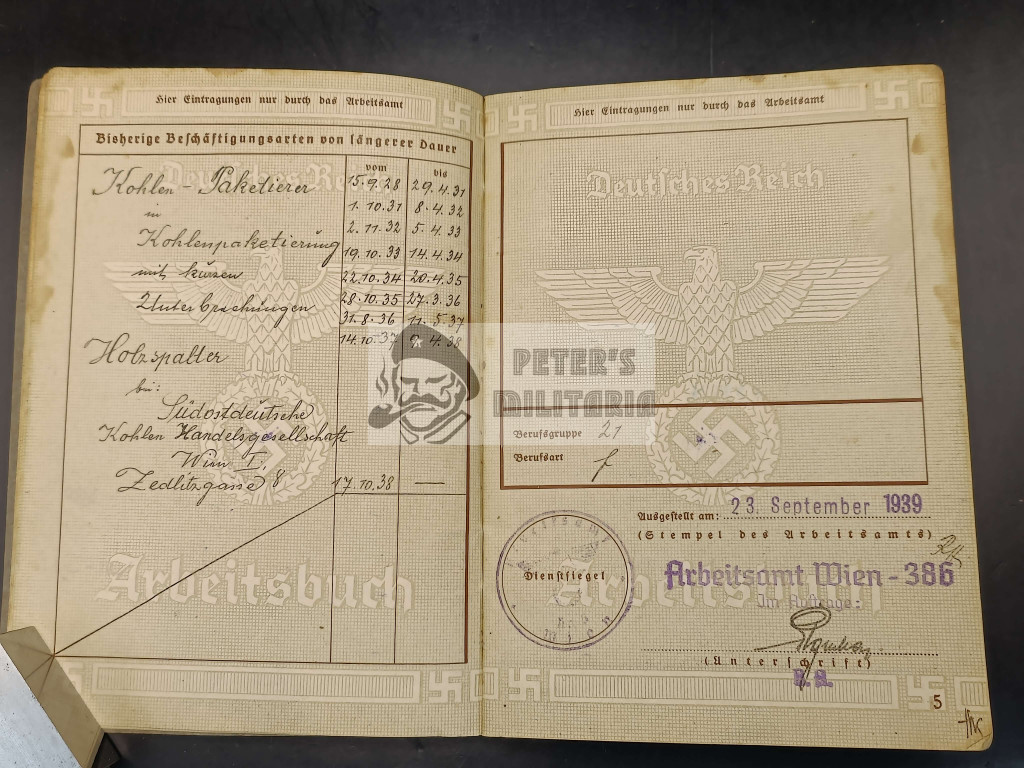 Hier Eintragungen nur durch das Arbeitsamt
Bisherige Beschäftigungsarten von längerer Dauer
vom bis
Deutsches Reich
Kohlen - Paketierer 15.9.28 29.4.31
1.10.31 8.4.32
in 2.11.32 5.4.33
Kohlenpaketierung 19.10.33 14.4.34
mit kurzen 22.10.34 20.4.35
Unterbrechungen 28.10.35 27.3.36
31.8.36 11.5.37
14.10.37 9.4.38
Holzspalter
bei:
Südostdeutsche
Kohlen Handelsgesellschaft
Wien I.
Zedlitzgasse 8 17.10.38 —
Arbeitsbuch
Hier Eintragungen nur durch das Arbeitsamt
Deutsches Reich
PETER'S
MILITARIA
Berufsgruppe 21
Berufsart f
Ausgestellt am: 23. September 1939
(Stempel des Arbeitsamts)
Dienstsiegel
Wien
Arbeitsamt Wien - 386
Im Auftrage:
Arbeitsbuch
(Unterschrift)
5